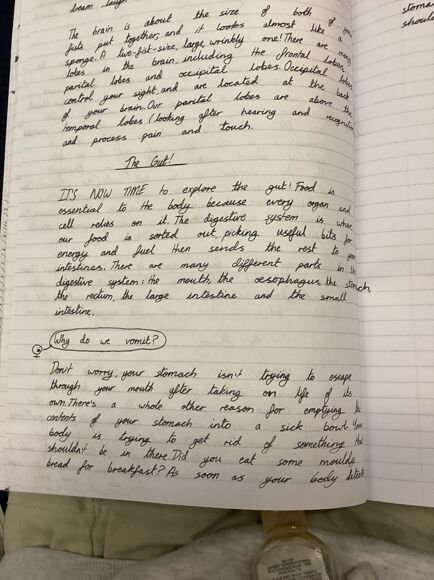 dream, laugh
The brain is about the size of both of your
fists put together, and it looks almost like a
sponge. A two-fist-size, large, wrinkly one! There are many
lobes in the brain, including the frontal lobes,
parital lobes and occipital lobes. Occipital lobes
control your sight, and are located at the back
of your brain. Our parital lobes are above the
temporal lobes (looking after hearing and recognition
and process pain and touch.
The Gut!
IT'S NOW TIME to explore the gut! Food is
essential to the body because every organ and
cell relies on it. The digestive system is where
our food is sorted out, picking useful bits for
energy and fuel then sends the rest to your
intestines. There are many different parts in the
digestive system: the mouth, the oesophagus, the stomach,
the rectum, the large intestine and the small
intestine.
Why do we vomit?
Don't worry, your stomach isn't trying to escape
through your mouth after taking on life of its
own. There's a whole other reason for emptying the
contents of your stomach into a sick bowl. Your
body is trying to get rid of something that
shouldn't be in there. Did you eat some mouldy
bread for breakfast? As soon as your body detects
stoma
shoul